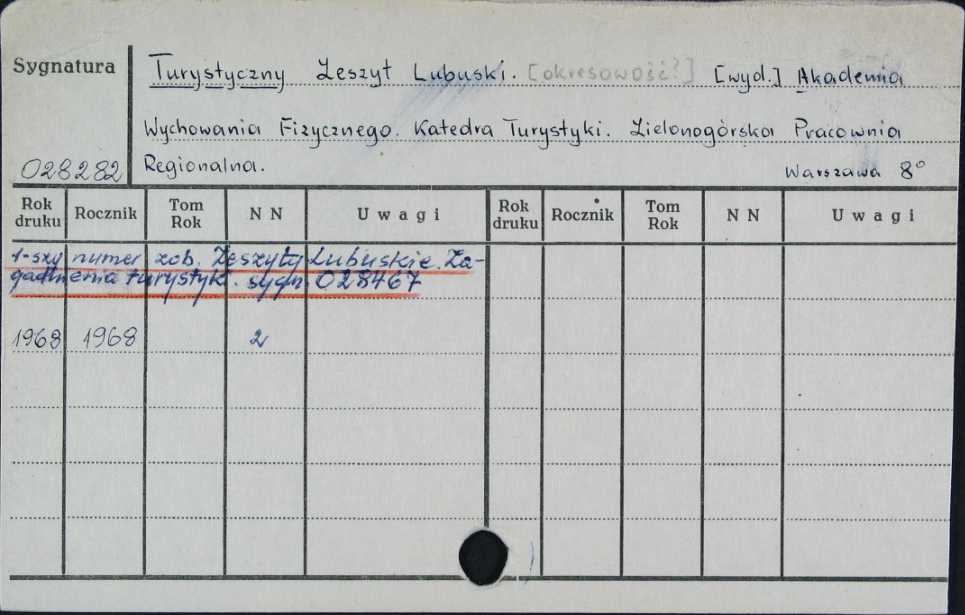 Sygnatura
Turystyczny Zeszyt Lubuski. [okresowość?] [wyd.] Akademia
Wychowania Fizycznego. Katedra Turystyki. Zielonogórska Pracownia
028282 Regionalna. Warszawa 8°
Rok druku Rocznik Tom Rok N N Uwagi Rok druku Rocznik Tom Rok N N Uwagi
1-szy numer zob. Zeszyty Lubuskie. Za-
gadnienia turystyki. sygn. 028467
1968 1968 2